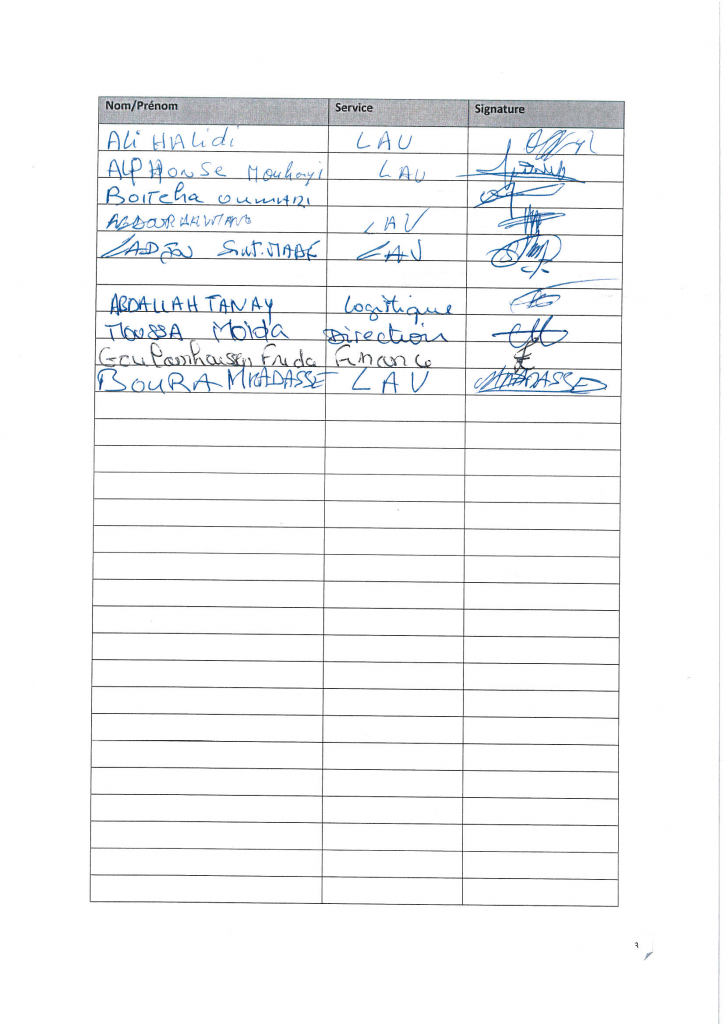 Nom/Prénom Service Signature
Ali HALidi LAU
AlPHonse Mouhayi LAU
Boitcha oumadi
ABDOURAHMANE LAV
LAV
ABDALLAH TANAY Logistique
MOUSSA Moida Direction
Frida Finance
BOURA MKADASSE LAV MKADASSE
3